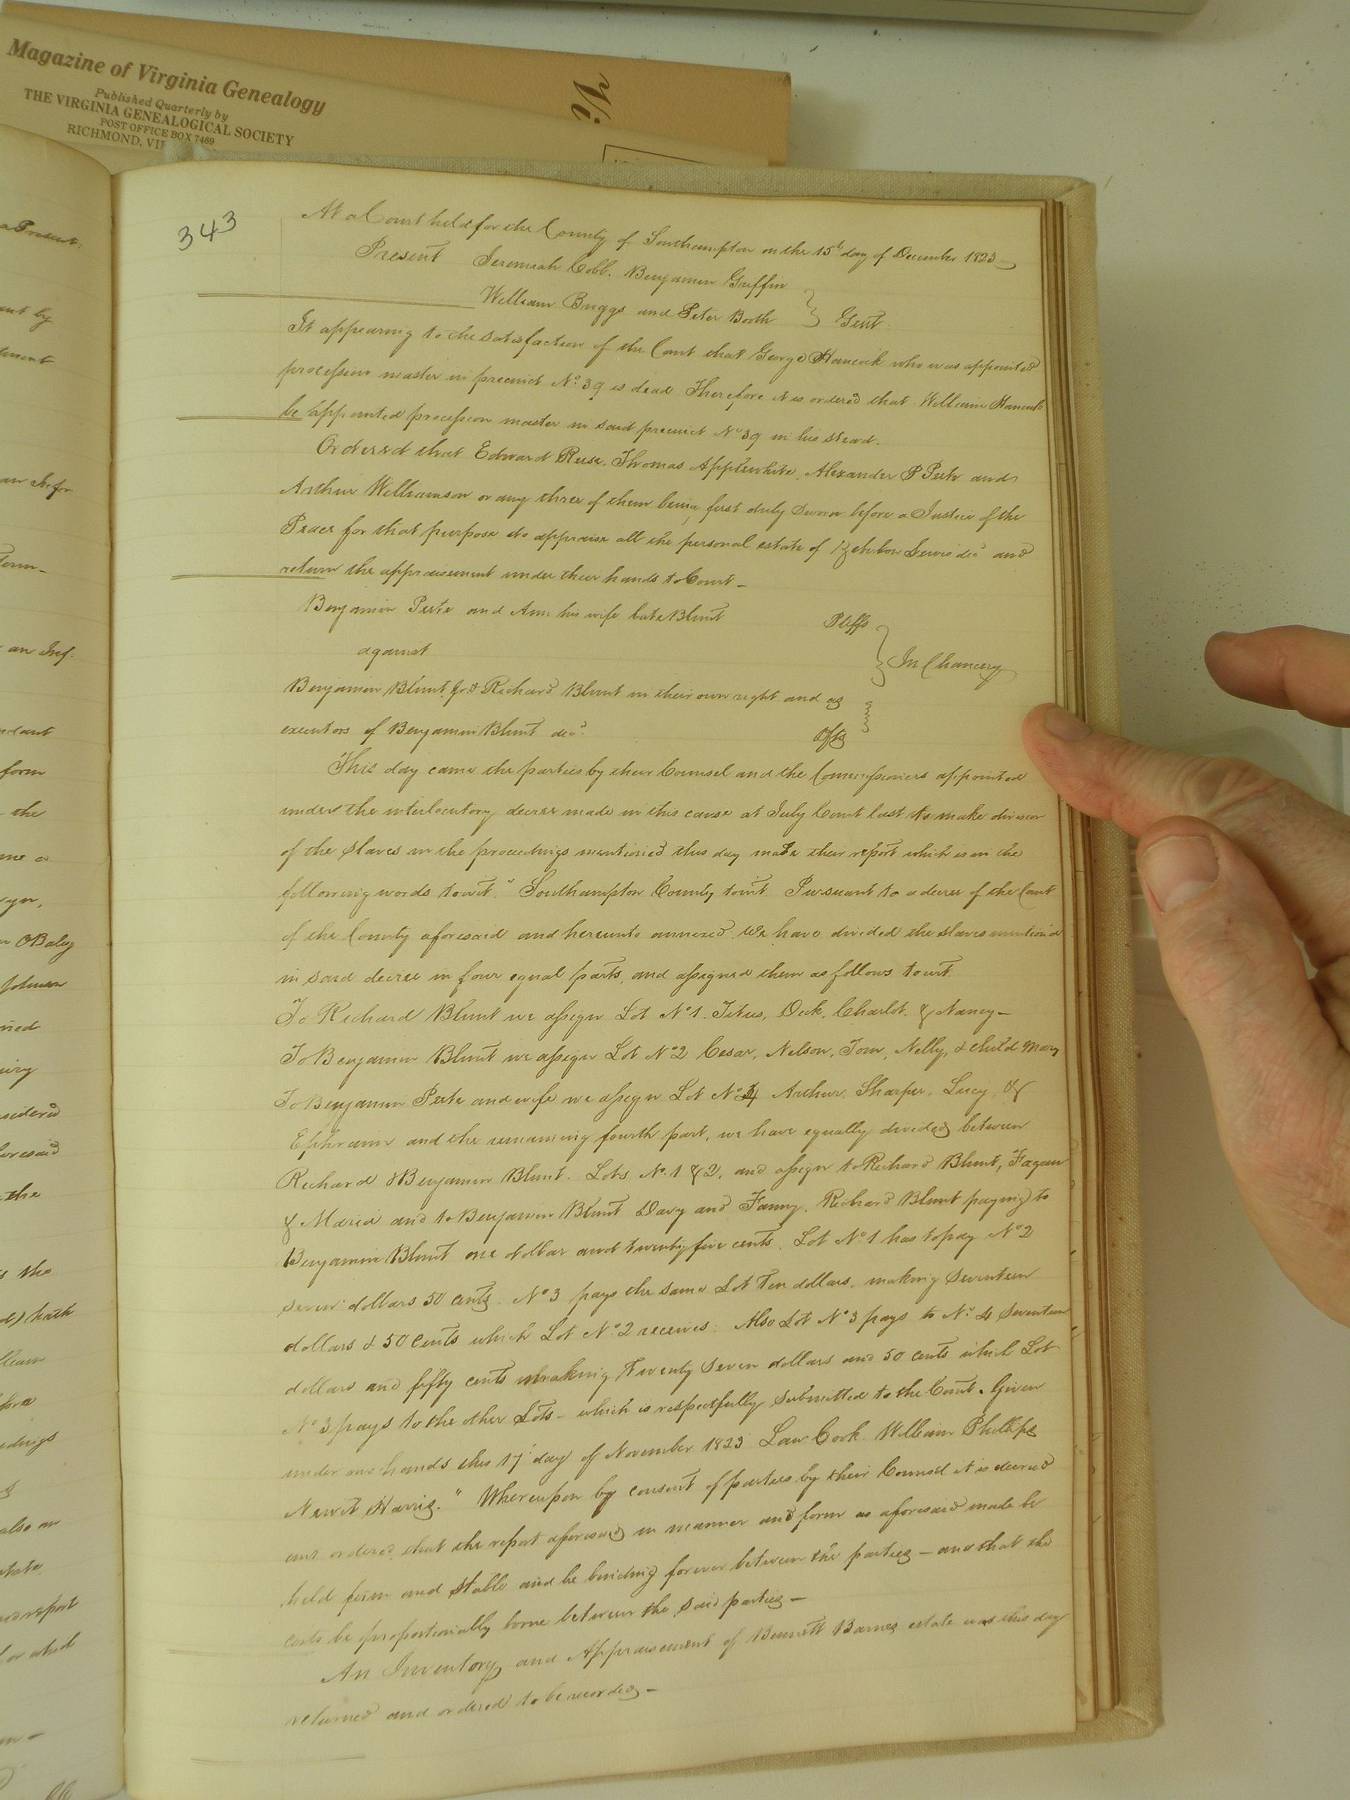 Magazine of Virginia Genealogy
Published Quarterly by
THE VIRGINIA GENEALOGICAL SOCIETY
POST OFFICE BOX 7469
RICHMOND, VI
Vi
343
At a Court held for the County of Southampton on the 15th day of December 1823
Present Jeremiah Cobb, Benjamin Griffin
William Briggs and Peter Booth } Gent.
It appearing to the satisfaction of the Court that George Hancock who was appointed
procession master in precinct No. 39 is dead Therefore it is ordered that William Hancock
be appointed procession master in said precinct No 39 in his stead.
Ordered that Edward Reese, Thomas Applewhite, Alexander P Peete and
Arthur Williamson or any three of them being first duly sworn before a Justice of the
Peace for that purpose do appraise all the personal estate of Lewis decd and
return the appraisement under their hands to Court –
Benjamin Peete and Ann his wife late Blunt Pltffs
against } In Chancery
Benjamin Blunt & Richard Blunt in their own right and as
executors of Benjamin Blunt decd. Dfts
This day came the parties by their Counsel and the Commissioners appointed
under the interlocutory decree made in this cause at July Court last to make division
of the Slaves in the proceedings mentioned this day made their report which is in the
following words towit. " Southampton County towit. Pursuant to a decree of the Court
of the County aforesaid and hereunto annexed We have divided the slaves mention'd
in said decree in four equal parts, and assigned them as follows towit
To Richard Blunt we assign Lot No 1. Titus, Dick, Charlot. & Nancy –
To Benjamin Blunt we assign Lot No 2 Cesar, Nelson, Tom, Nelly, & child Mary
To Benjamin Peete and wife we assign Lot No 4 Arthur, Sharper, Lucy, &
Ephraim and the remaining fourth part, we have equally divided between
Richard & Benjamin Blunt. Lots No. 1 & 2, and assign to Richard Blunt, Fagan
& Maria and to Benjamin Blunt Davy and Fanny, Richard Blunt paying to
Benjamin Blunt one dollar and twenty five cents. Lot No 1 has to pay No 2
seven dollars 50 cents. No 3 pays the same Lot Ten dollars, making Seventeen
dollars & 50 cents which Lot No 2 receives. Also Lot No 3 pays to No. 4 Seventeen
dollars and fifty cents making Twenty Seven dollars and 50 cents which Lot
No 3 pays to the other Lots – which is respectfully submitted to the Court. Given
under our hands this 17 day of November 1823 Law Cook William Phillips
Newit Harris. " Whereupon by consent of parties by their Counsel it is decreed
and ordered that the report aforesaid in manner and form as aforesaid made be
held firm and stable and be binding forever between the parties – and that the
costs be proportionally borne between the said parties –
An Inventory and Appraisement of Bennett Barnes estate was this day
returned and ordered to be recorded –